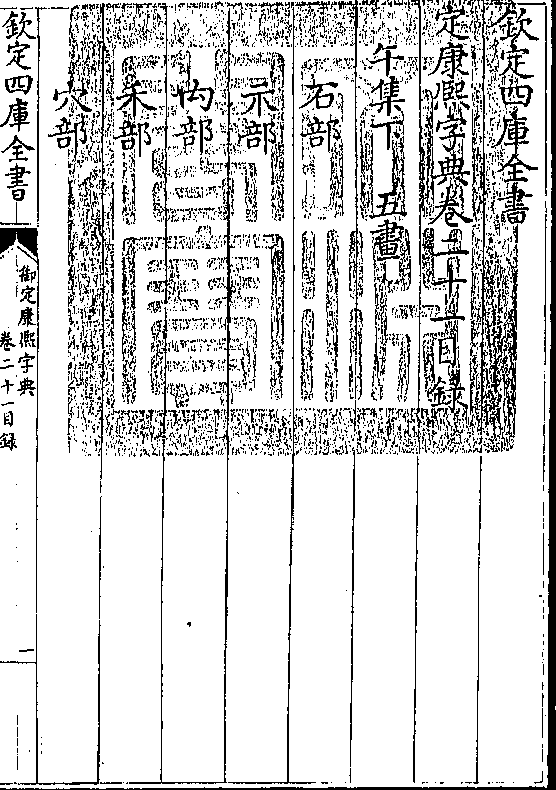 欽定四庫全書
定康熙字典卷二十一目錄
午集下 五畫
石部
示部
禸部
禾部
穴部
欽定四庫全書
御定康熙字典
卷二十一目錄
一